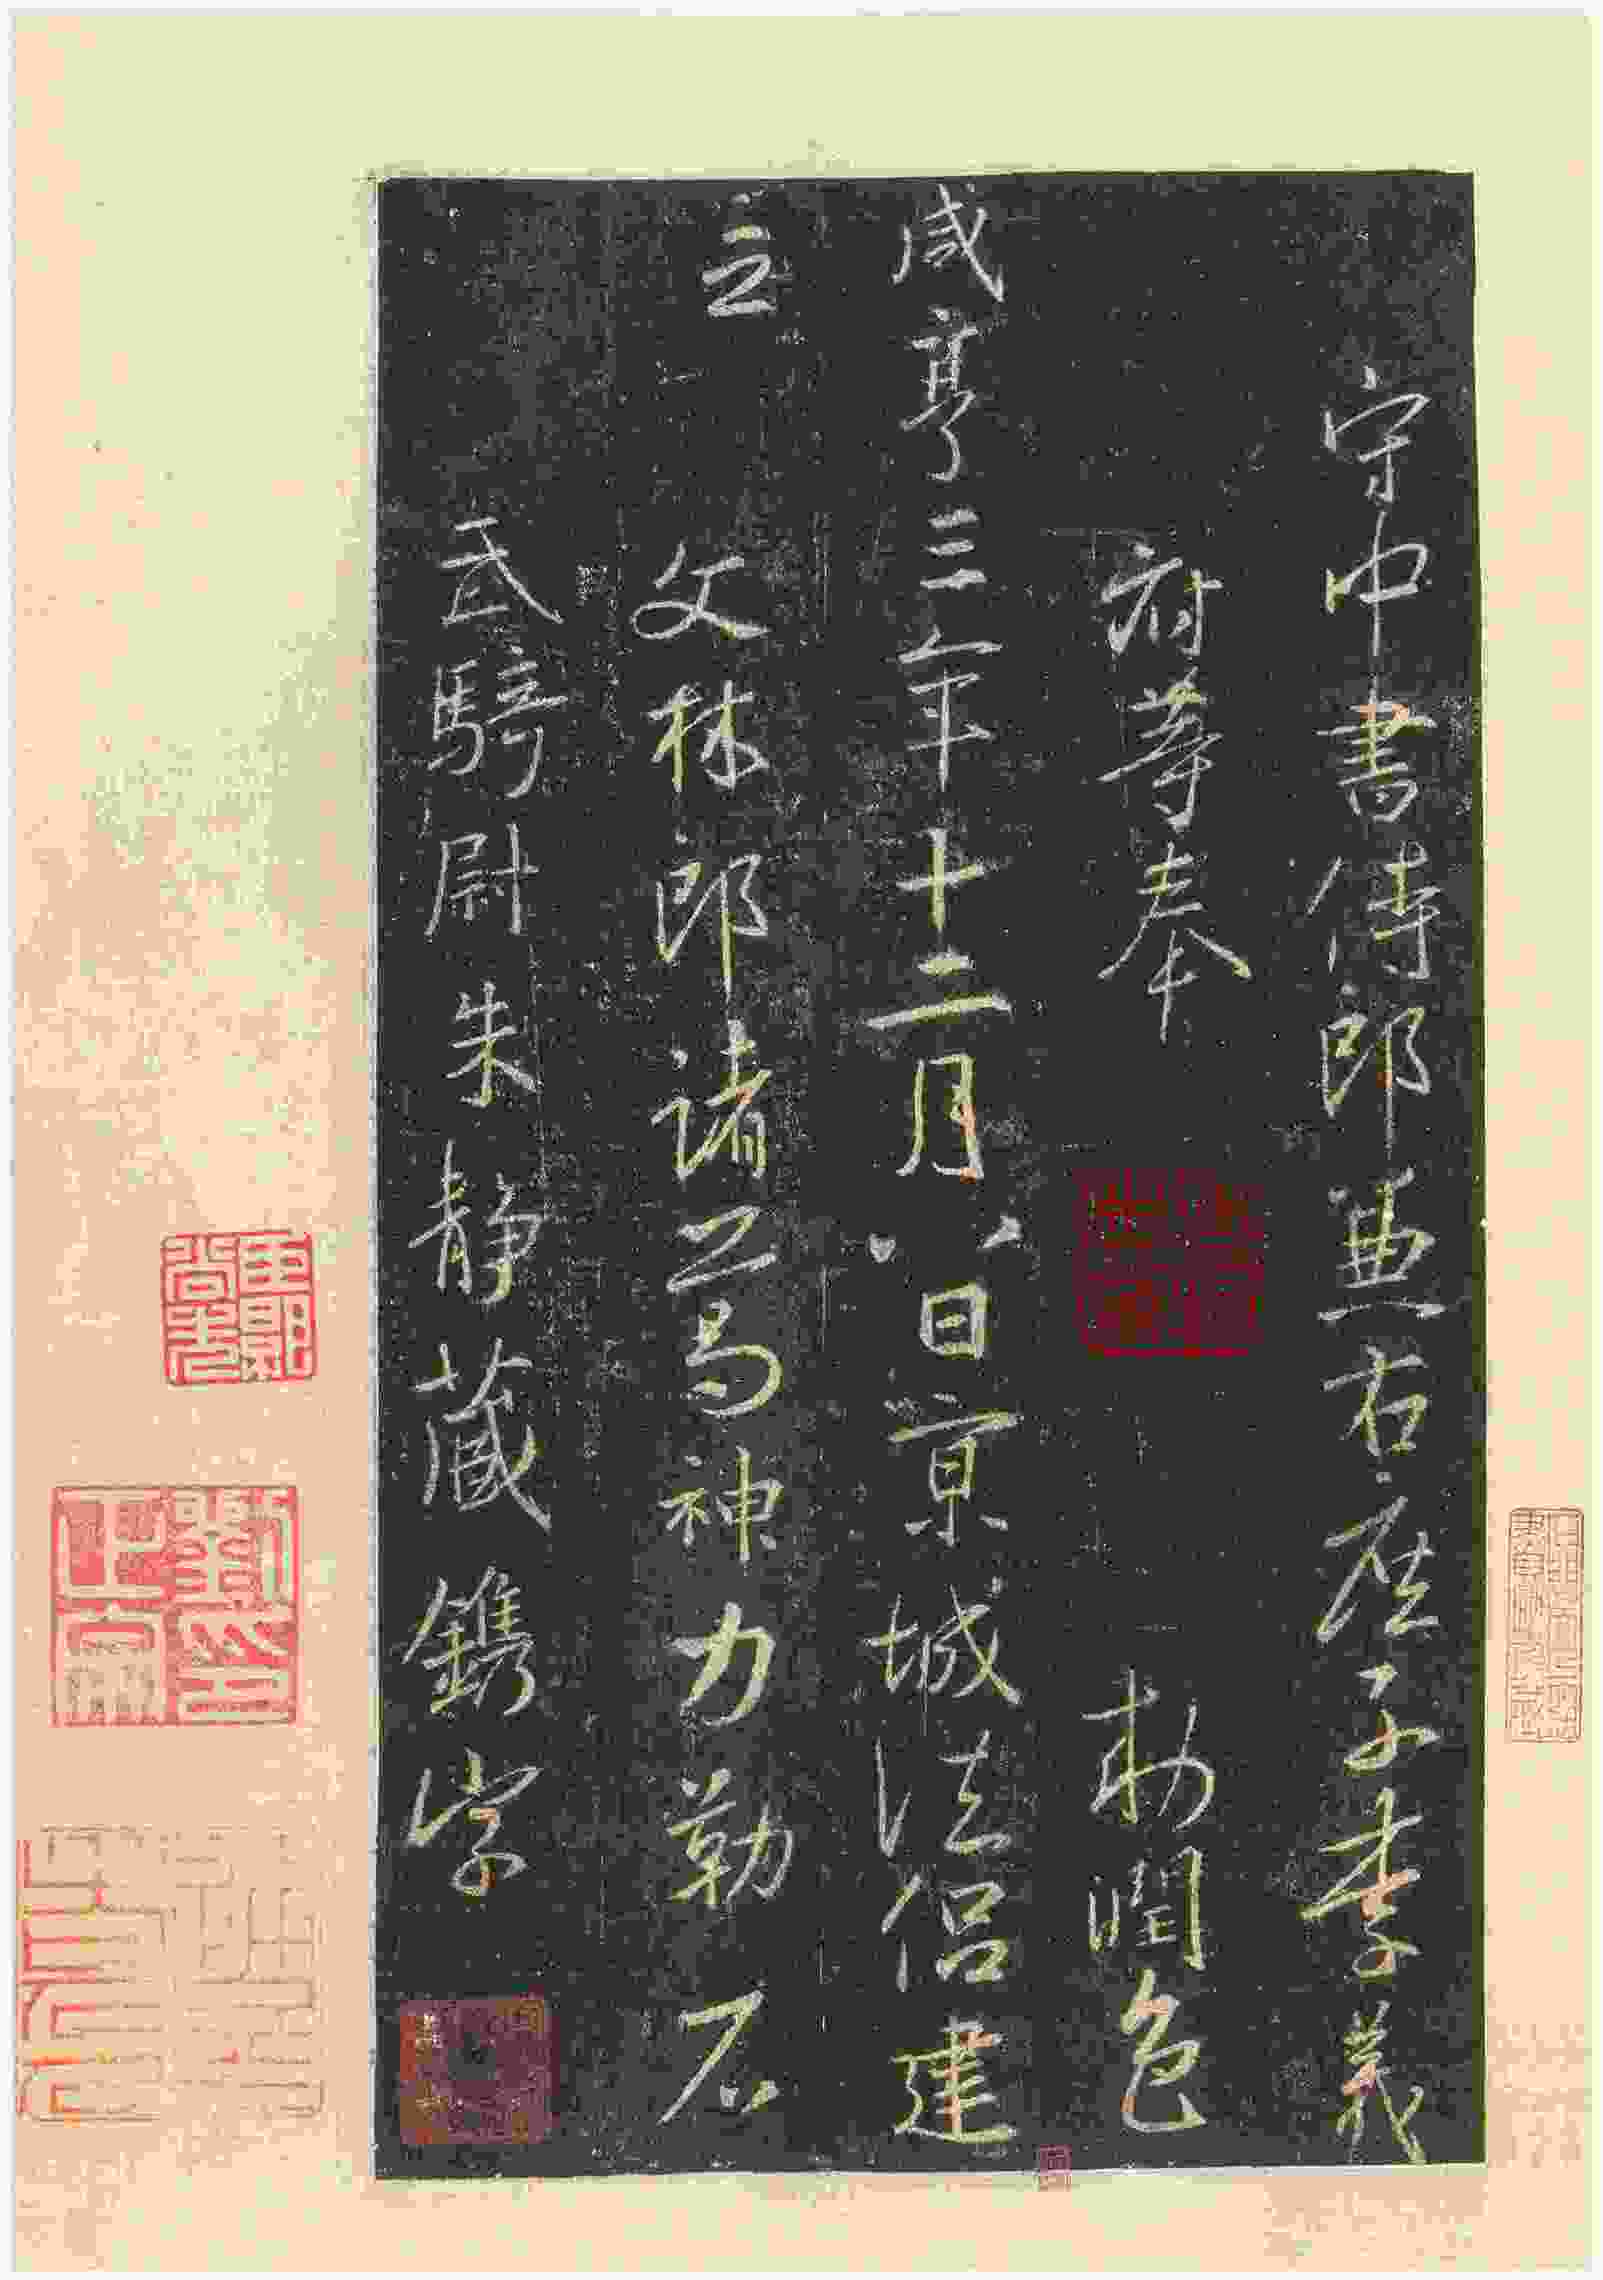 守中書侍郎兼右庶子李義
府等奉　勅潤色
咸亨三年十二月八日京城法侶建
立
文林郎諸葛神力勒石
武騎尉朱静藏鐫字